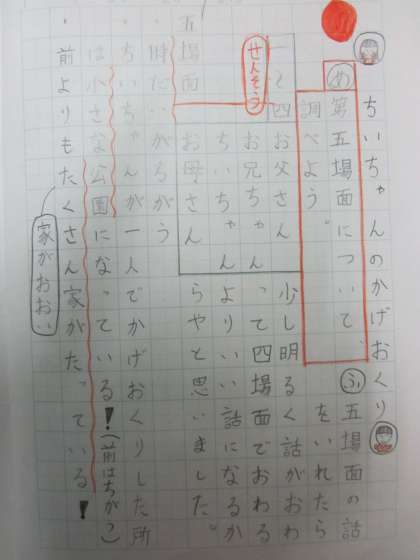 ちいちゃんのかげおくり
め 第五場面について、
調べよう。
一と四
せんそう
お父さん
お兄ちゃん
ちいちゃん
お母さん
ふ 五場面の話
をいれたら
少し明るく話がおわ
って四場面でおわる
よりいい話になるか
らやと思いました。
五場面
・時だいがちがう
・ちいちゃんが一人でかげおくりした所
は小さな公園になっている！(前はちがう)
・前よりもたくさん家がたっている！
家がおおい